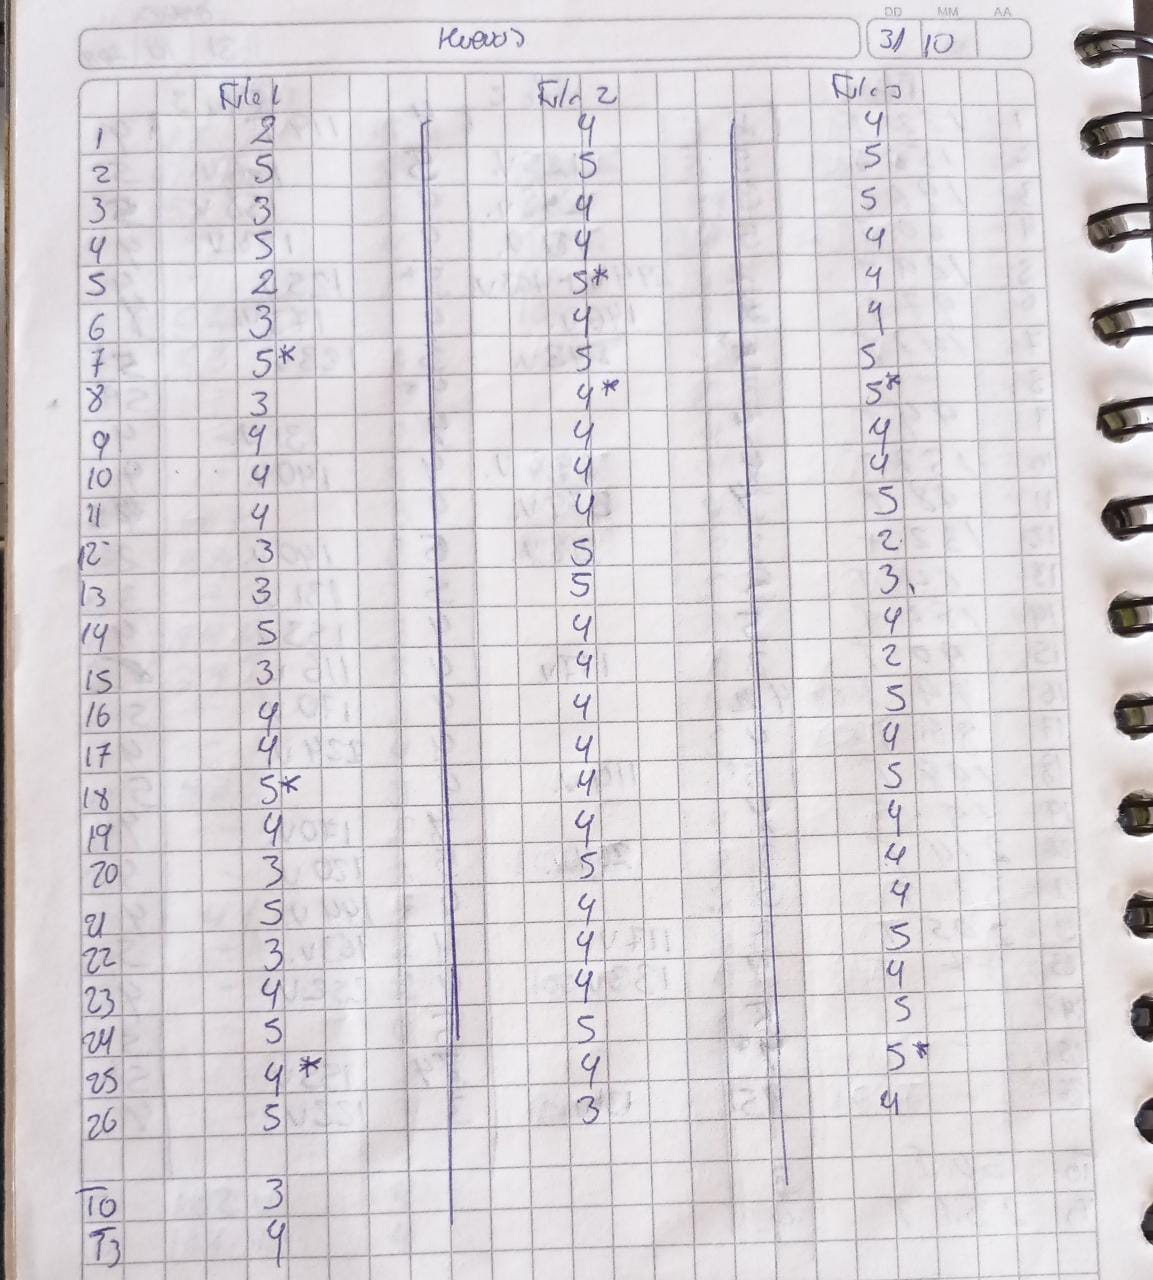 DD MM AA
Huevos 31 10
Fila 1 Fila 2 Fila 3
1 2 4 4
2 5 5 5
3 3 4 5
4 5 4 4
5 2 5* 4
6 3 4 4
7 5* 5 5
8 3 4* 5*
9 4 4 4
10 4 4 4
11 4 4 5
12 3 5 2
13 3 5 3
14 5 4 4
15 3 4 2
16 4 4 5
17 4 4 4
18 5* 4 5
19 4 4 4
20 3 5 4
21 5 4 4
22 3 4 5
23 4 4 4
24 5 5 5
25 4 * 4 5*
26 5 3 4
T0 3
T3 4